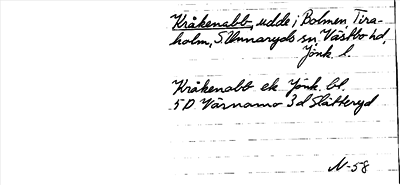 Kråkenabb, udde i Bolmen, Tira-
holm, S. Unnaryds sn, Västbo hd,
Jönk. l.
Kråkenabb ek Jönk. bl.
5D Värnamo 3d Slätteryd
N-58